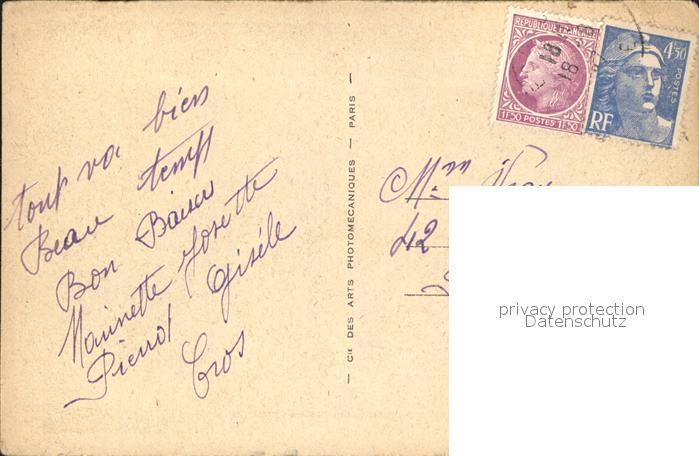 tout va bien
Beau temps
Bon Baiser
Maurinette Josette
Pierrot Gisèle
Cros
— Cie DES ARTS PHOTOMÉCANIQUES — PARIS —
REPUBLIQUE FRANÇAISE
1F50 POSTES 1F50
4F50
POSTES
RF
18
18
Mme
42
privacy protection
Datenschutz